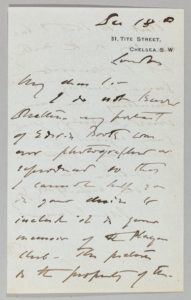 Dec 18th
31, TITE STREET,
CHELSEA. S.W.
London
My dear Sir
I do not know
whether my portrait
of Edwin Booth was
ever photographed or
reproduced so that
I cannot help you
in your desire to
include it in your
memoir of the Players
Club. The picture
is the property of the